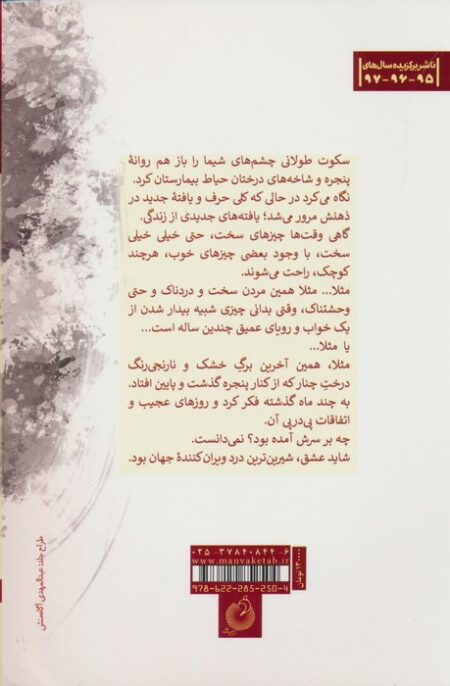 ناشر برگزیده سال‌های
۹۵-۹۶-۹۷
سکوت طولانی چشم‌های شیما را باز هم روانهٔ
پنجره و شاخه‌های درختان حیاط بیمارستان کرد.
نگاه می‌کرد در حالی که کلی حرف و یافتهٔ جدید در
ذهنش مرور می‌شد؛ یافته‌های جدیدی از زندگی.
گاهی وقت‌ها چیزهای سخت، حتی خیلی خیلی
سخت، با وجود بعضی چیزهای خوب، هرچند
کوچک، راحت می‌شوند.
مثلا... مثلا همین مردن سخت و دردناک و حتی
وحشتناک، وقتی بدانی چیزی شبیه بیدار شدن از
یک خواب و رویای عمیق چندین ساله است...
یا مثلا...
مثلا، همین آخرین برگِ خشک و نارنجی‌رنگ
درختِ چنار که از کنار پنجره گذشت و پایین افتاد.
به چند ماه گذشته فکر کرد و روزهای عجیب و
اتفاقات پی‌درپی آن.
چه بر سرش آمده بود؟ نمی‌دانست.
شاید عشق، شیرین‌ترین درد ویران‌کنندهٔ جهان بود.
۰۲۵-۳۷۸۴۰۸۴۴-۶
www.manvaketab.ir
978-622-285-250-4
تومان
طراح جلد: عبدالمهدی